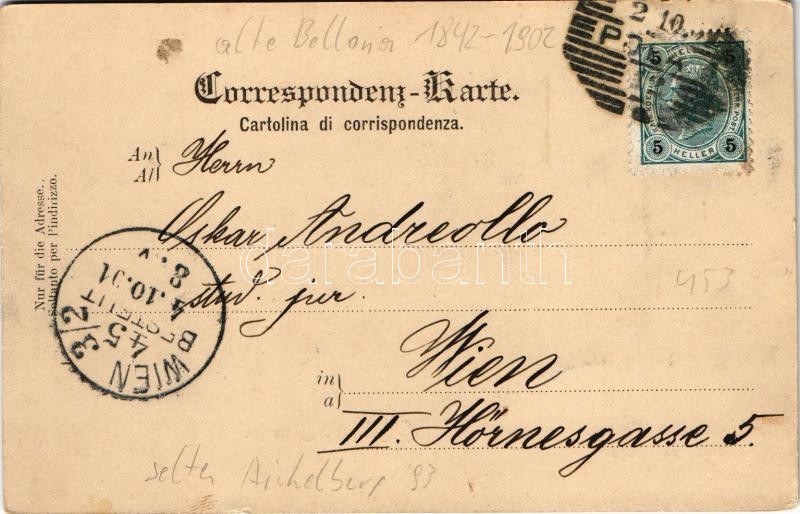 alte Bellona 1842-1902
2 10
P
5 5
HELLER
5 5
Correspondenz-Karte.
Cartolina di corrispondenza.
An
All
Herrn
Oskar Andreolla
stud. jur.
in
a
Wien
III. Hörnesgasse 5.
Nur für die Adresse.
Soltanto per l'indirizzo.
WIEN 3/2
45
BESTELLT
4.10.01
8.V
453
selten Aichelburg 93
darabanth